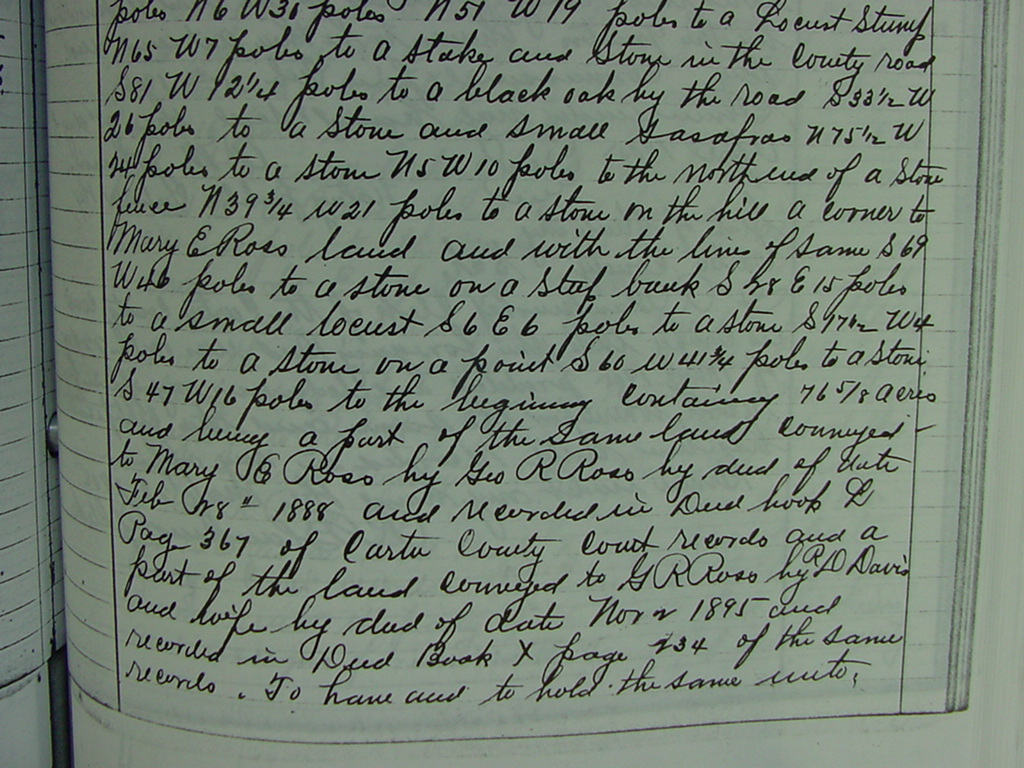 poles N6 W31 poles N51 W19 poles to a Locust Stump
N65 W7 poles to a Stake and Stone in the County road
S81 W 12 1/4 poles to a black oak by the road S33 1/2 W
26 poles to a Stone and small Sasafras N75 1/2 W
24 poles to a stone N5 W10 poles to the north end of a Stone
fence N39 3/4 W21 poles to a stone on the hill a corner to
Mary E Ross land and with the line of same S69
W46 poles to a stone on a Steep bank S28 E15 poles
to a small locust S6 E6 poles to a stone S17 1/2 W4
poles to a stone on a point S60 W41 3/4 poles to a Stone
S47 W16 poles to the begining containing 76 5/8 acres
and being a part of the same land conveyed
to Mary E Ross by Geo R Ross by deed of date
Feb 28" 1888 and recorded in Deed book L
Page 367 of Carter County Court records and a
part of the land conveyed to G R Ross by P D Davis
and wife by deed of date Nov 2 1895 and
recorded in Deed Book X page 234 of the same
records. To have and to hold the same unto